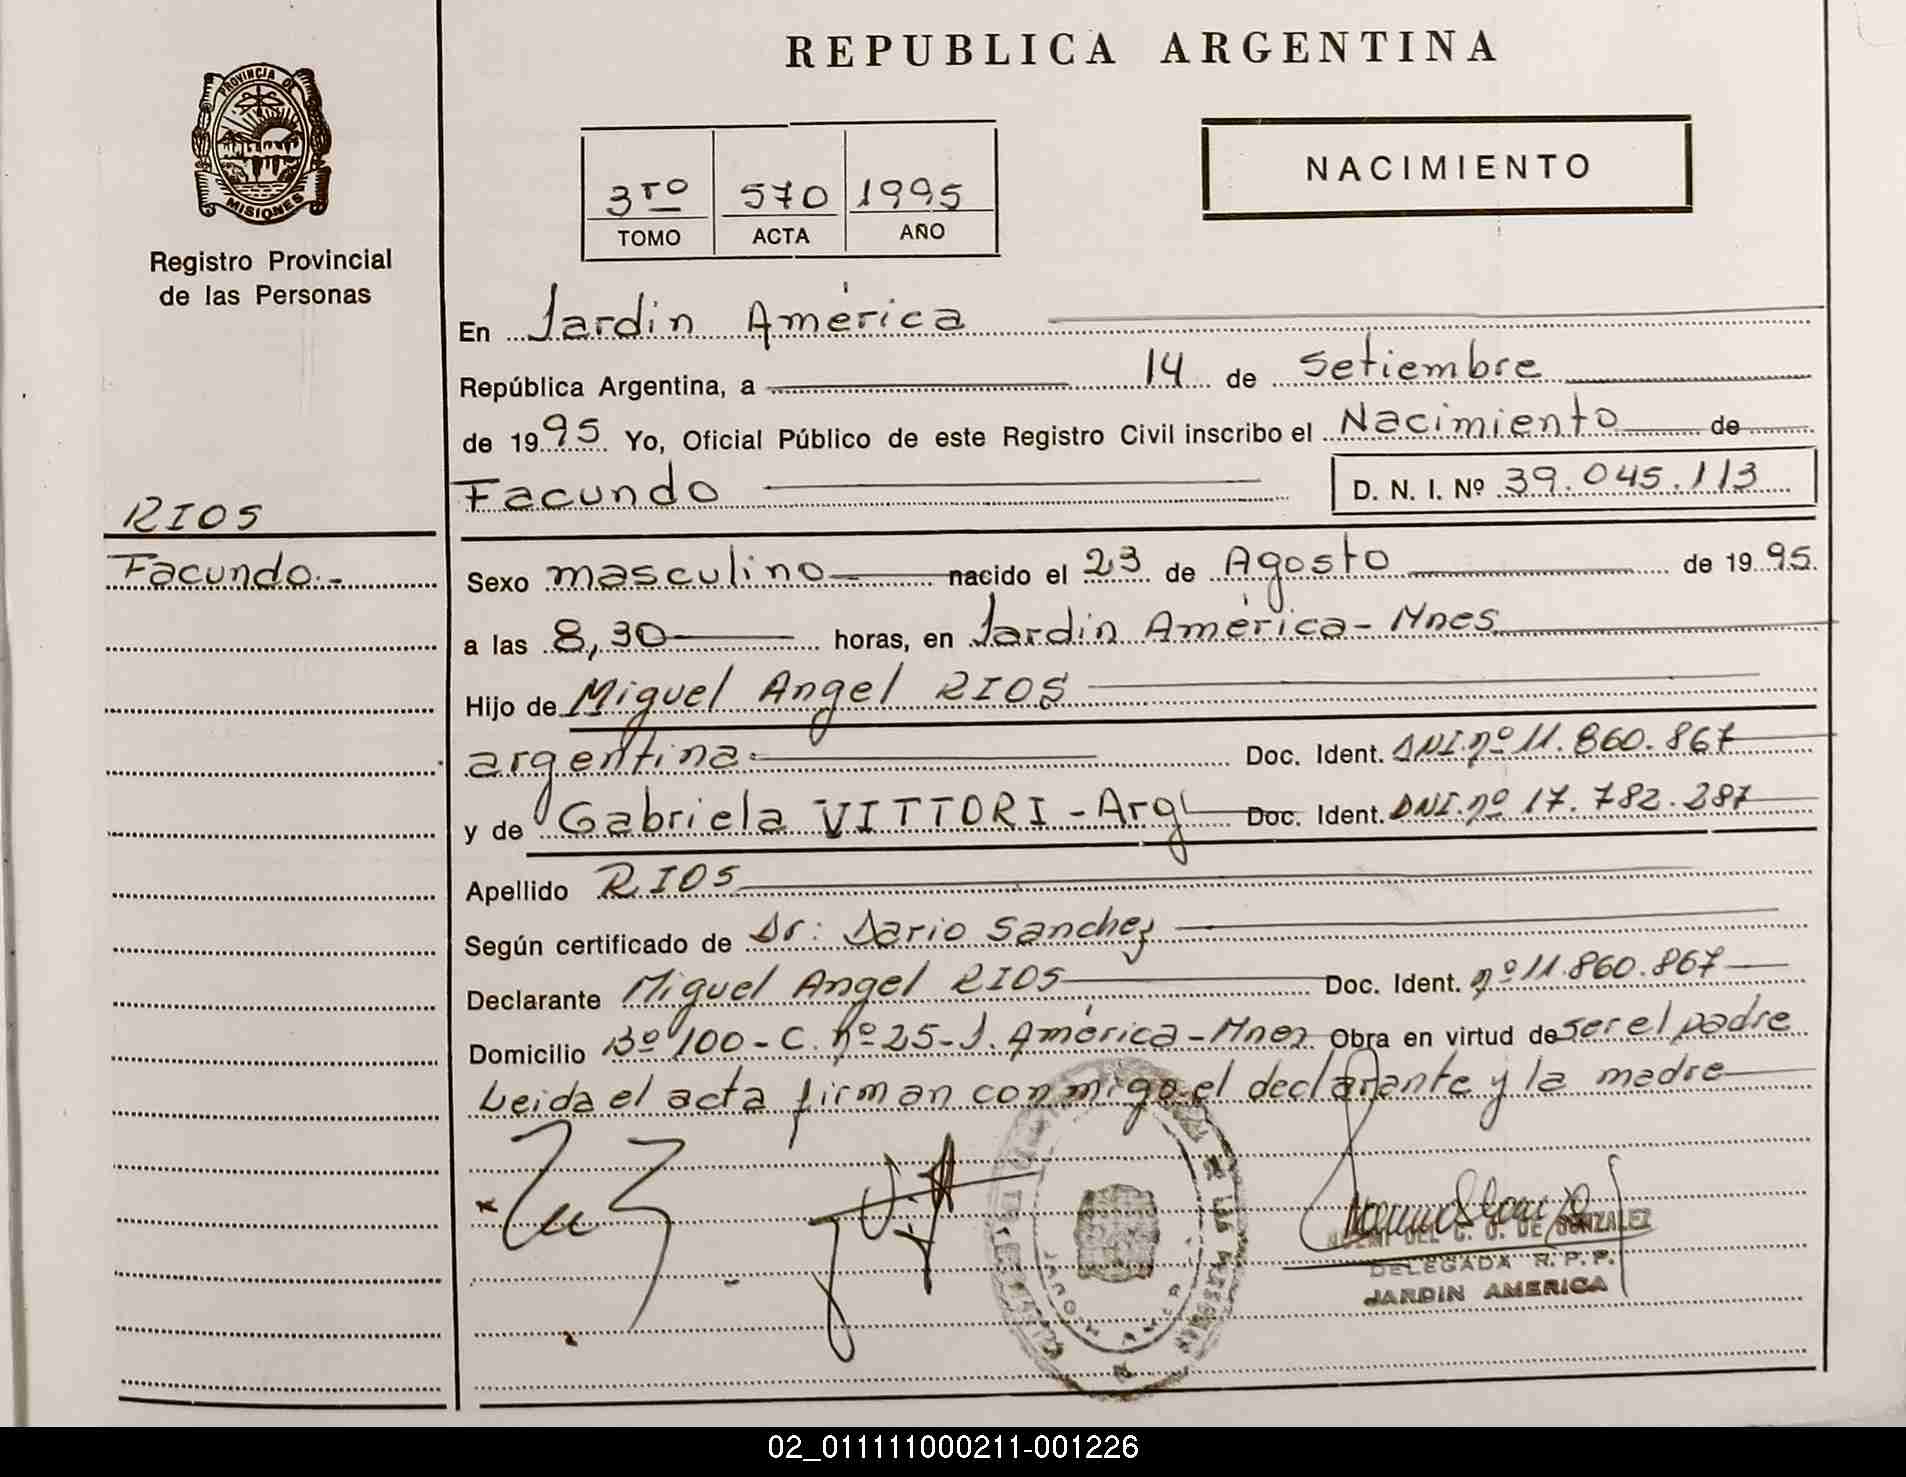 REPUBLICA ARGENTINA
PROVINCIA DE
MISIONES
Registro Provincial
de las Personas
NACIMIENTO
3ro 570 1995
TOMO ACTA AÑO
En Jardín América
República Argentina, a 14 de Setiembre
de 1995 Yo, Oficial Público de este Registro Civil inscribo el Nacimiento de
Facundo D. N. I. Nº 39.045.113
RIOS
Facundo.-
Sexo masculino nacido el 23 de Agosto de 1995.
a las 8,30 horas, en Jardín América - Mnes
Hijo de Miguel Angel RIOS
argentina Doc. Ident. DNI.nº 11.860.867
y de Gabriela VITTORI - Arg Doc. Ident. DNI.nº 17.782.287
Apellido RIOS
Según certificado de Dr: Dario Sanchez
Declarante Miguel Angel RIOS Doc. Ident. nº 11.860.867
Domicilio Bº 100 - C. nº 25 - J. América - Mnes Obra en virtud de ser el padre
Leida el acta firman conmigo el declarante y la madre
NOEMI DEL C. O. DE GONZALEZ
DELEGADA R. P. P.
JARDIN AMERICA
02_011111000211-001226